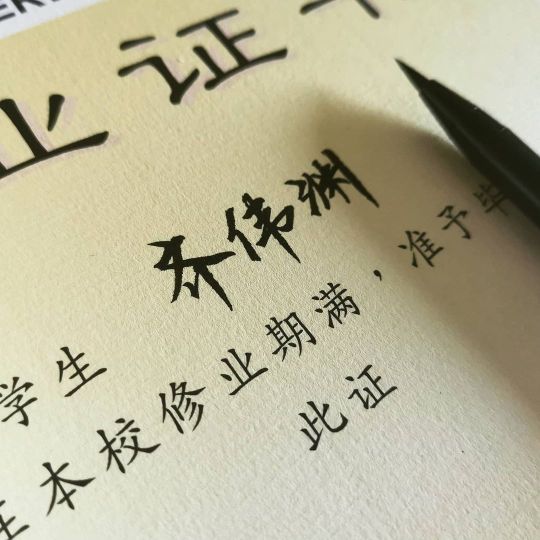 业证书
学生 乔伟渊
在本校修业期满，准予毕
此证